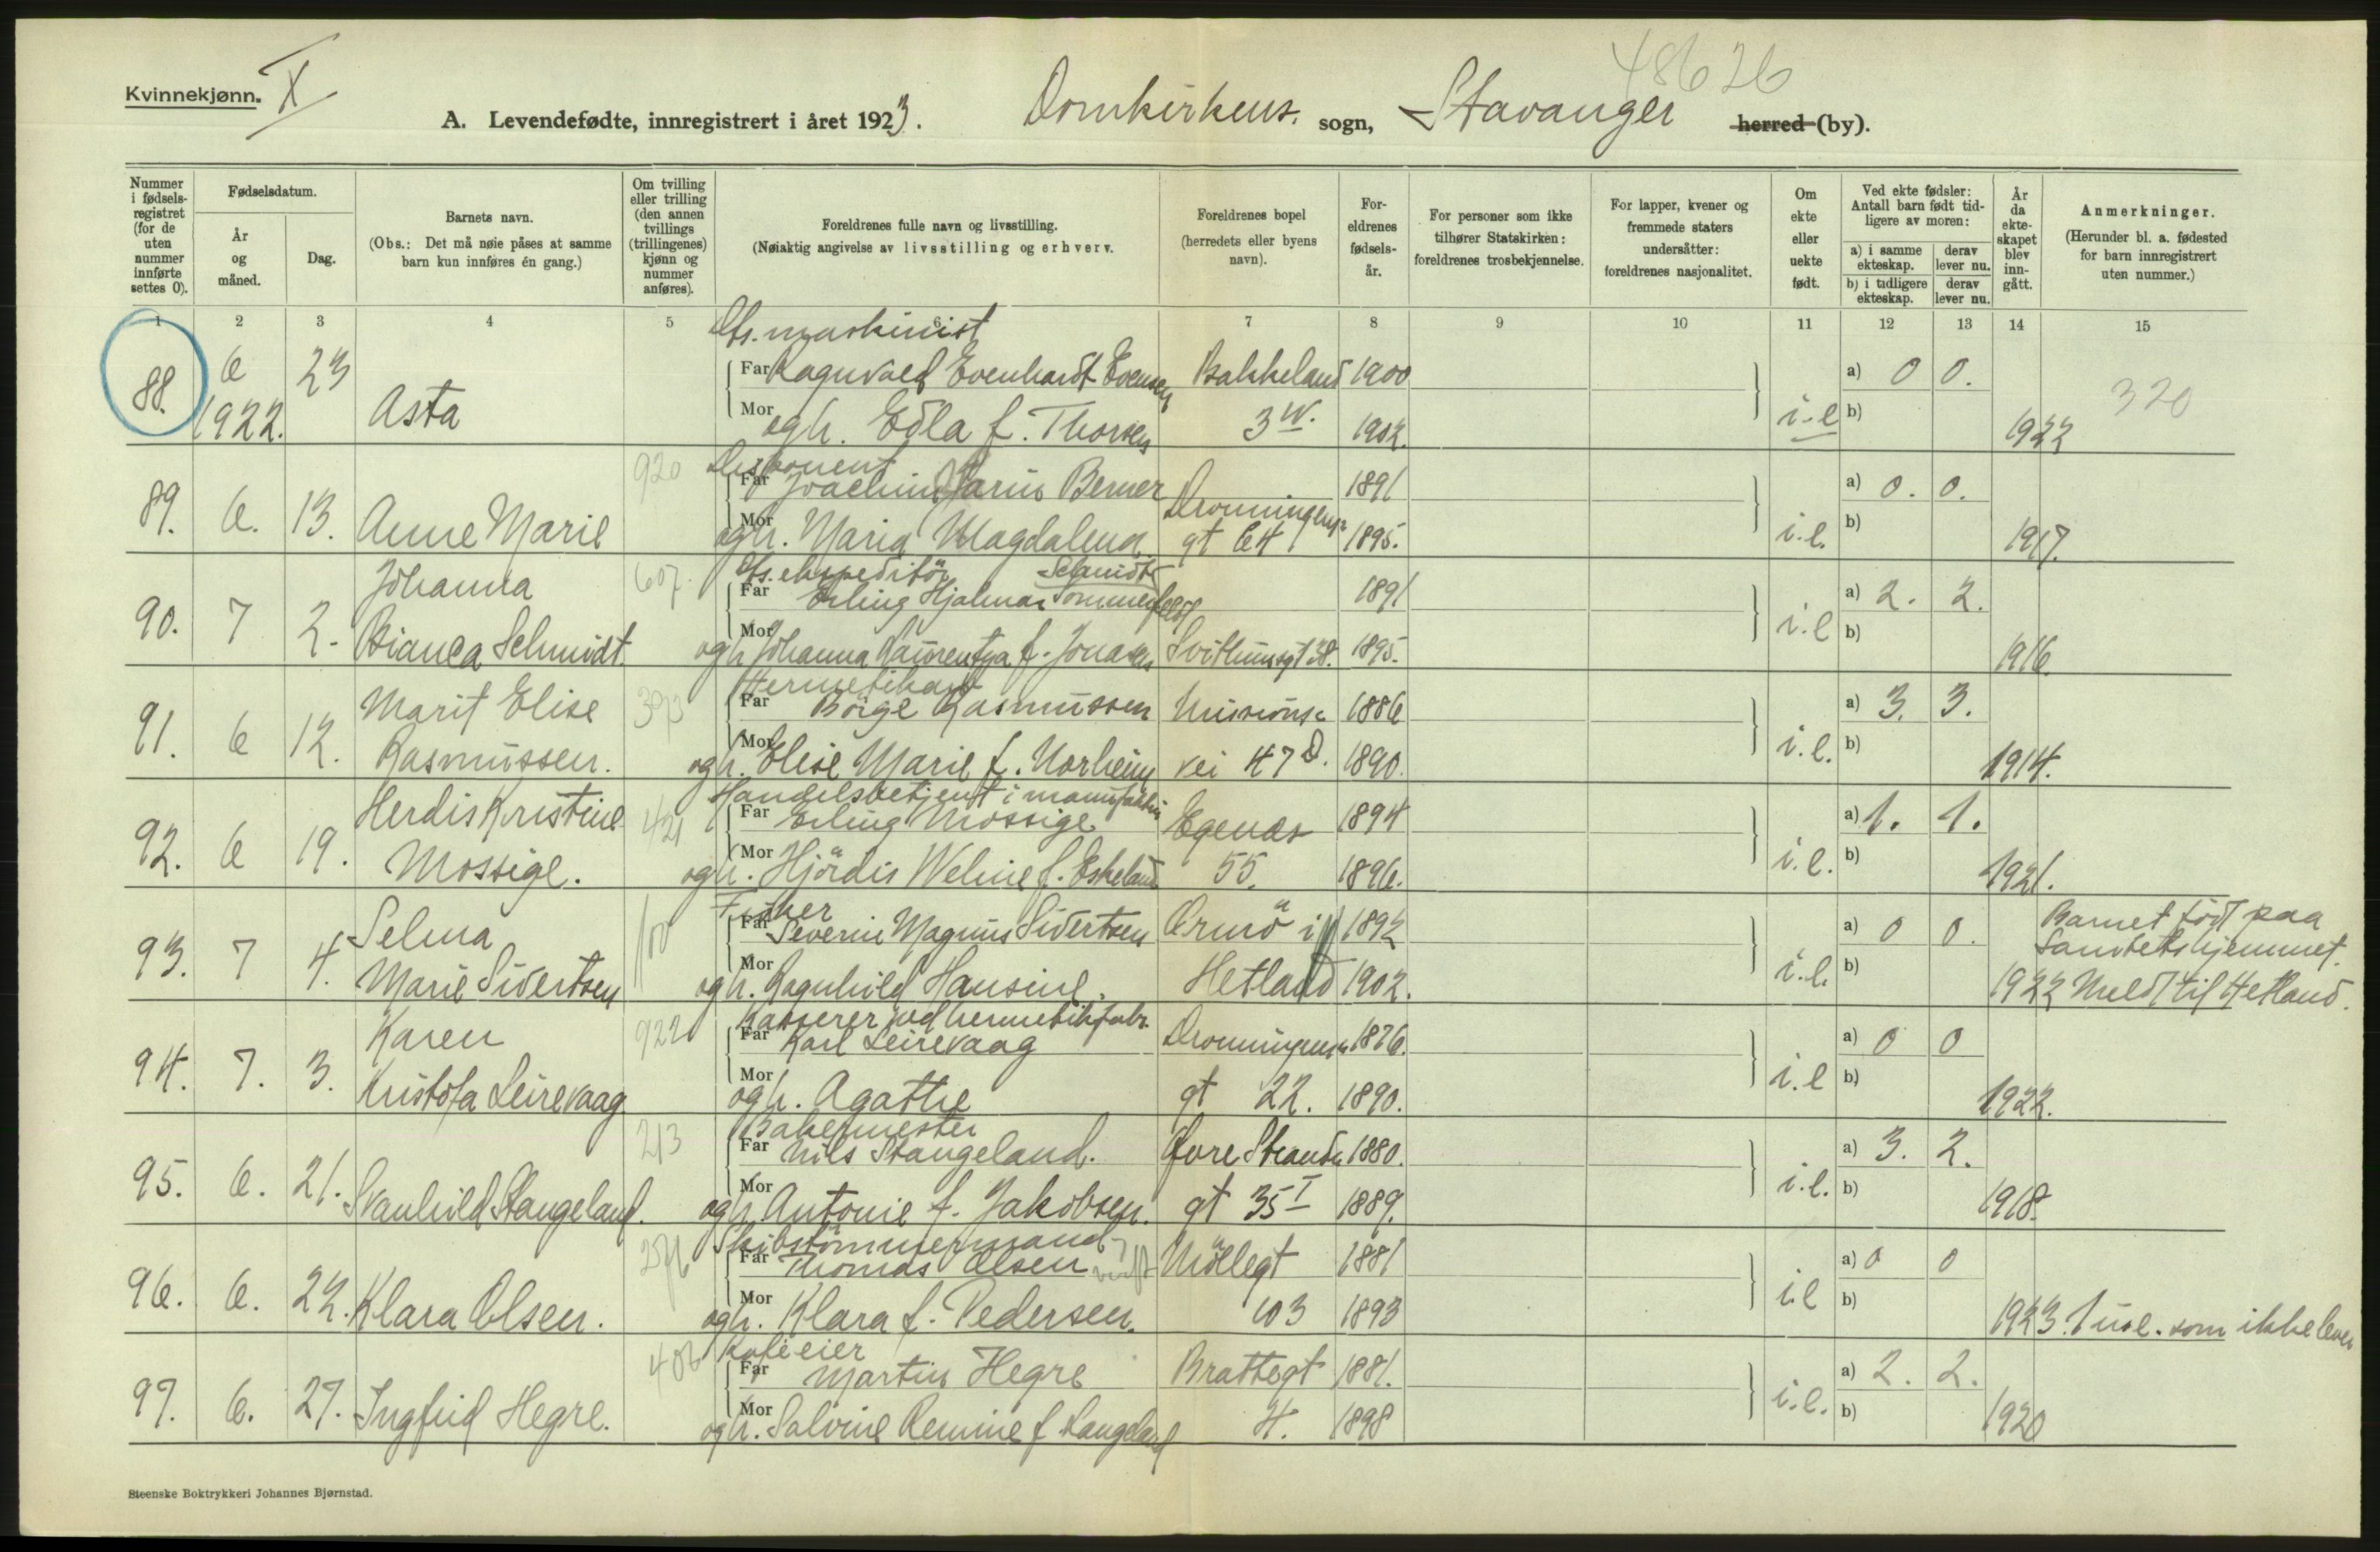 48626
Kvinnekjønn. X
A. Levendefødte, innregistrert i året 1923. Domkirkens. sogn, Stavanger herred (by).
Nummer i fødselsregistret (for de uten nummer innførte settes 0).
Fødselsdatum.
År og måned.
Dag.
Barnets navn.
(Obs.: Det må nøie påses at samme barn kun innføres én gang.)
Om tvilling eller trilling (den annen tvillings (trillingenes) kjønn og nummer anføres).
Foreldrenes fulle navn og livsstilling.
(Nøiaktig angivelse av livsstilling og erhverv.
Foreldrenes bopel (herredets eller byens navn).
Foreldrenes fødselsår.
For personer som ikke tilhører Statskirken: foreldrenes trosbekjennelse.
For lapper, kvener og fremmede staters undersåtter: foreldrenes nasjonalitet.
Om ekte eller uekte født.
Ved ekte fødsler: Antall barn født tidligere av moren:
a) i samme ekteskap. derav lever nu.
b) i tidligere ekteskap. derav lever nu.
År da ekteskapet blev inngått.
Anmerkninger.
(Herunder bl. a. fødested for barn innregistrert uten nummer.)
1 2 3 4 5 6 7 8 9 10 11 12 13 14 15
maskinist
88. 6 23 Far Ragnvald Evenhardt Evensen Bakkeland 1900 a) 0 0. 320
1922. Asta Mor og h. Edla f. Thorsen 3 IV. 1902. i-e b) 1922
920 Disponent
89. 6. 13. Far Joachim Marin Berner Dronningens 1891 a) 0. 0.
Anne Marie Mor og h. Maria Magdalena gt 64 1895. i.e. b) 1917.
Johanna 607. ekspeditör Schmidt
90. 7 2. Far Erling Hjalmar Sommerfeldt 1891 a) 2. 2.
Bianca Schmidt Mor og h Johanna Laurentza f. Jonasen Svithunsgt 38. 1895. i.e b) 1916
Hermetikarb
91. 6 12. Marit Elise 393 Far Börge Rasmussen Missions 1886 a) 3. 3.
Rasmussen. Mor og h. Elise Marie f. Norheim vei 47 D. 1890. i.e. b) 1914.
Handelsbetjent i manufaktur
92. 6 19. Herdis Kristine 421 Far Erling Mossige Egenæs 1894 a) 1. 1.
Mossige. Mor og h. Hjördis Weline f. Eskeland 55. 1896. i.e. b) 1921.
Fisker
93. 7 4. Selma 100 Far Severin Magnus Sivertsen Ormö i 1892 a) 0 0. Barnet född paa
Sanitetshjemmet.
Marie Sivertsen Mor og h. Ragnhild Hansine. Hetland 1902. i.e. b) 1922 Meldt til Hetland.
Kasserer ved hermetikfabr.
94. 7. 3. Karen 922 Far Karl Leirevaag Dronningens 1876. a) 0 0
Kristofa Leirevaag Mor og h. Agathe gt 22. 1890. i.e b) 1922.
213 Bakermester
95. 6. 21. Far Nils Stangeland. Øvre Strand 1880. a) 3. 2.
Svanhild Stangeland. Mor og h Antonie f. Jakobsen. gt 35 I 1889. i.e. b) 1918.
Skibstömmermand
96. 6. 22. Far Thomas Olsen Möllegt 1881 a) 0 0
Klara Olsen. Mor og h. Klara f. Pedersen. 103 1893 i.e b) 1923. 1 u.e. som ikke lever
406 Kafeeier
97. 6. 27. Far Martin Hegre Brattegt 1881. a) 2. 2.
Ingfrid Hegre. Mor og h. Salvine Remine f Langeland 4. 1898 i.e. b) 1920
Steenske Boktrykkeri Johannes Bjørnstad.